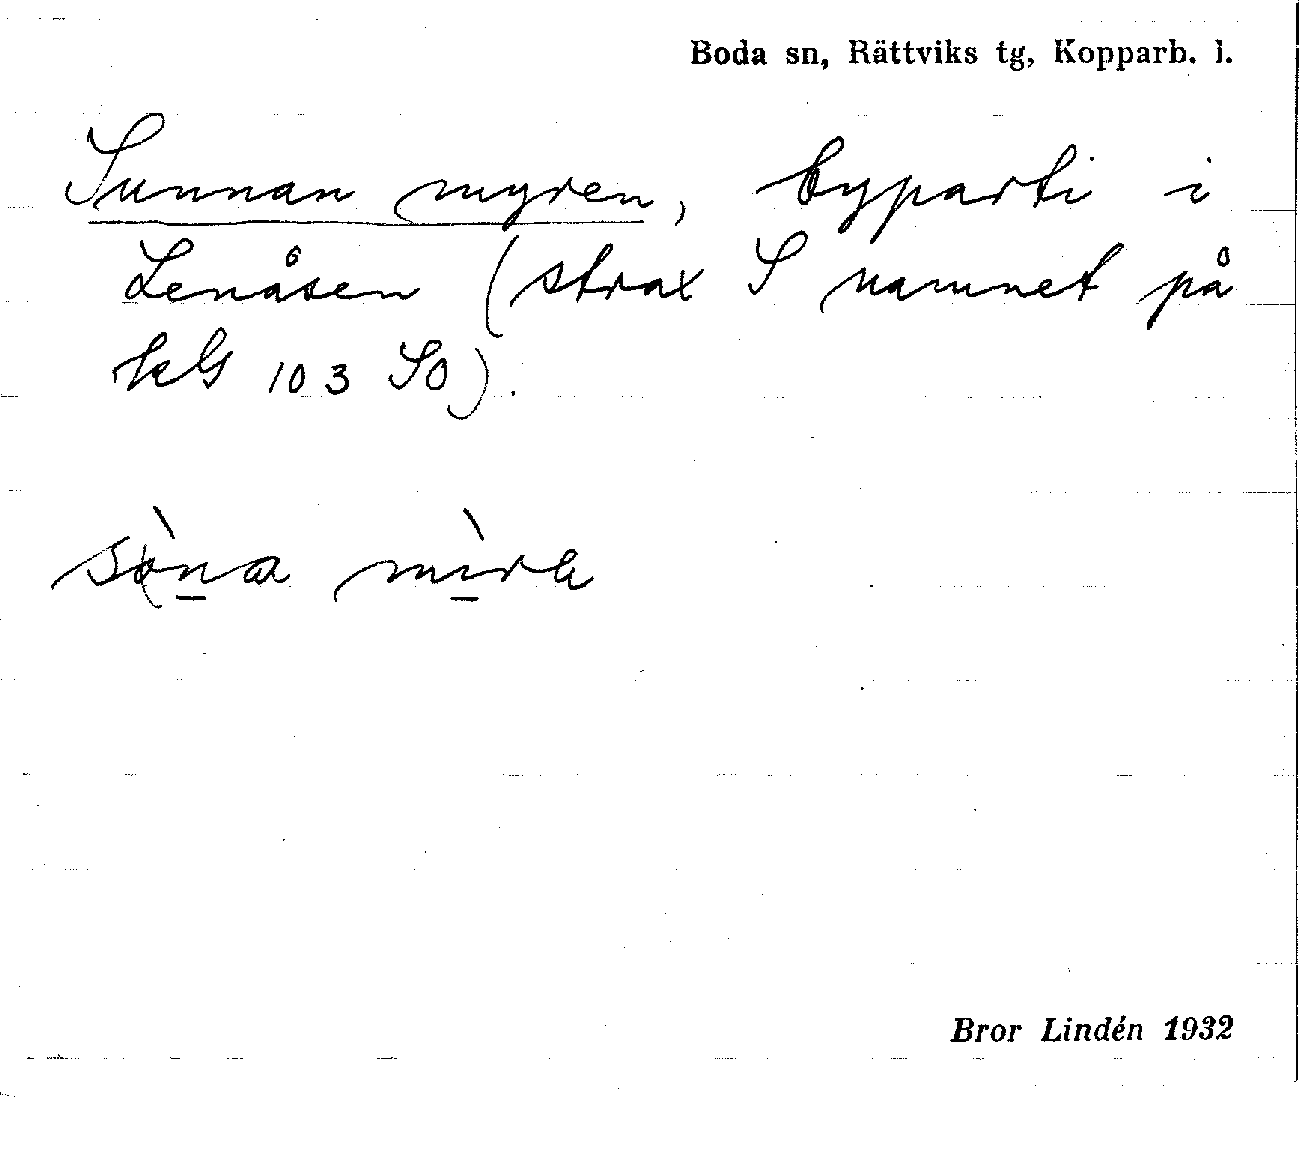 Boda sn, Rättviks tg, Kopparb. l.
Sunnan myren, byparti i
Lenåsen (strax S namnet på
kbl 103 SO).
sò̱na mì̱ra
Bror Lindén 1932